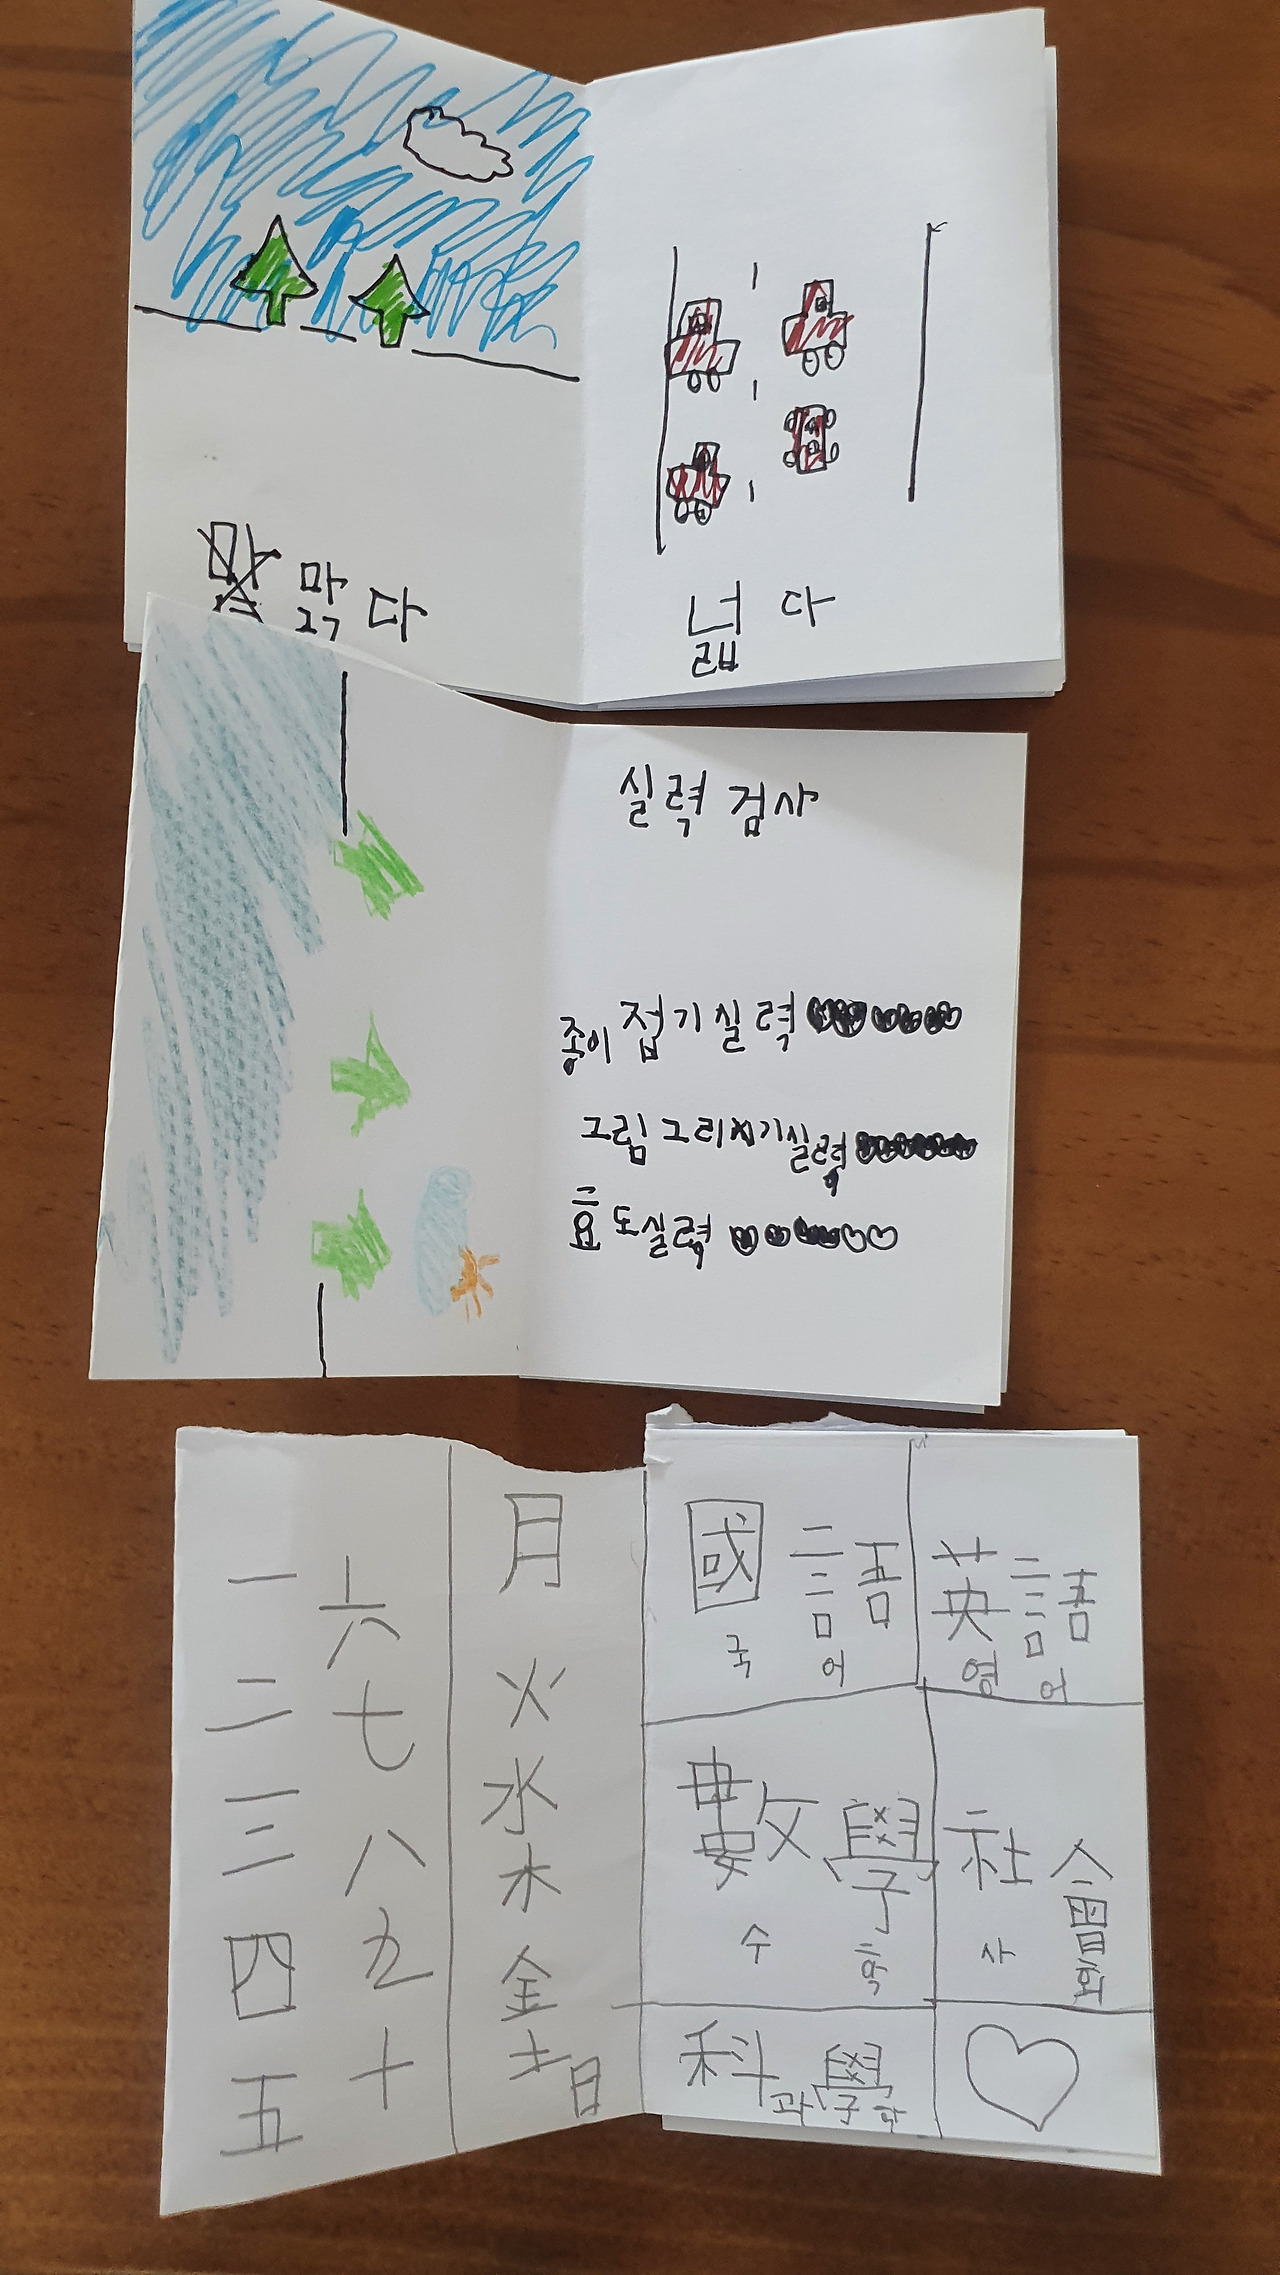 맑다
넓다
실력 검사
종이 접기 실력
그림 그리기 실력
효도 실력
一
二
三
四
五
六
七
八
九
十
月
火
水
木
金
土
日
國語
국 어
英語
영 어
數學
수 학
社會
사 회
科學
과 학